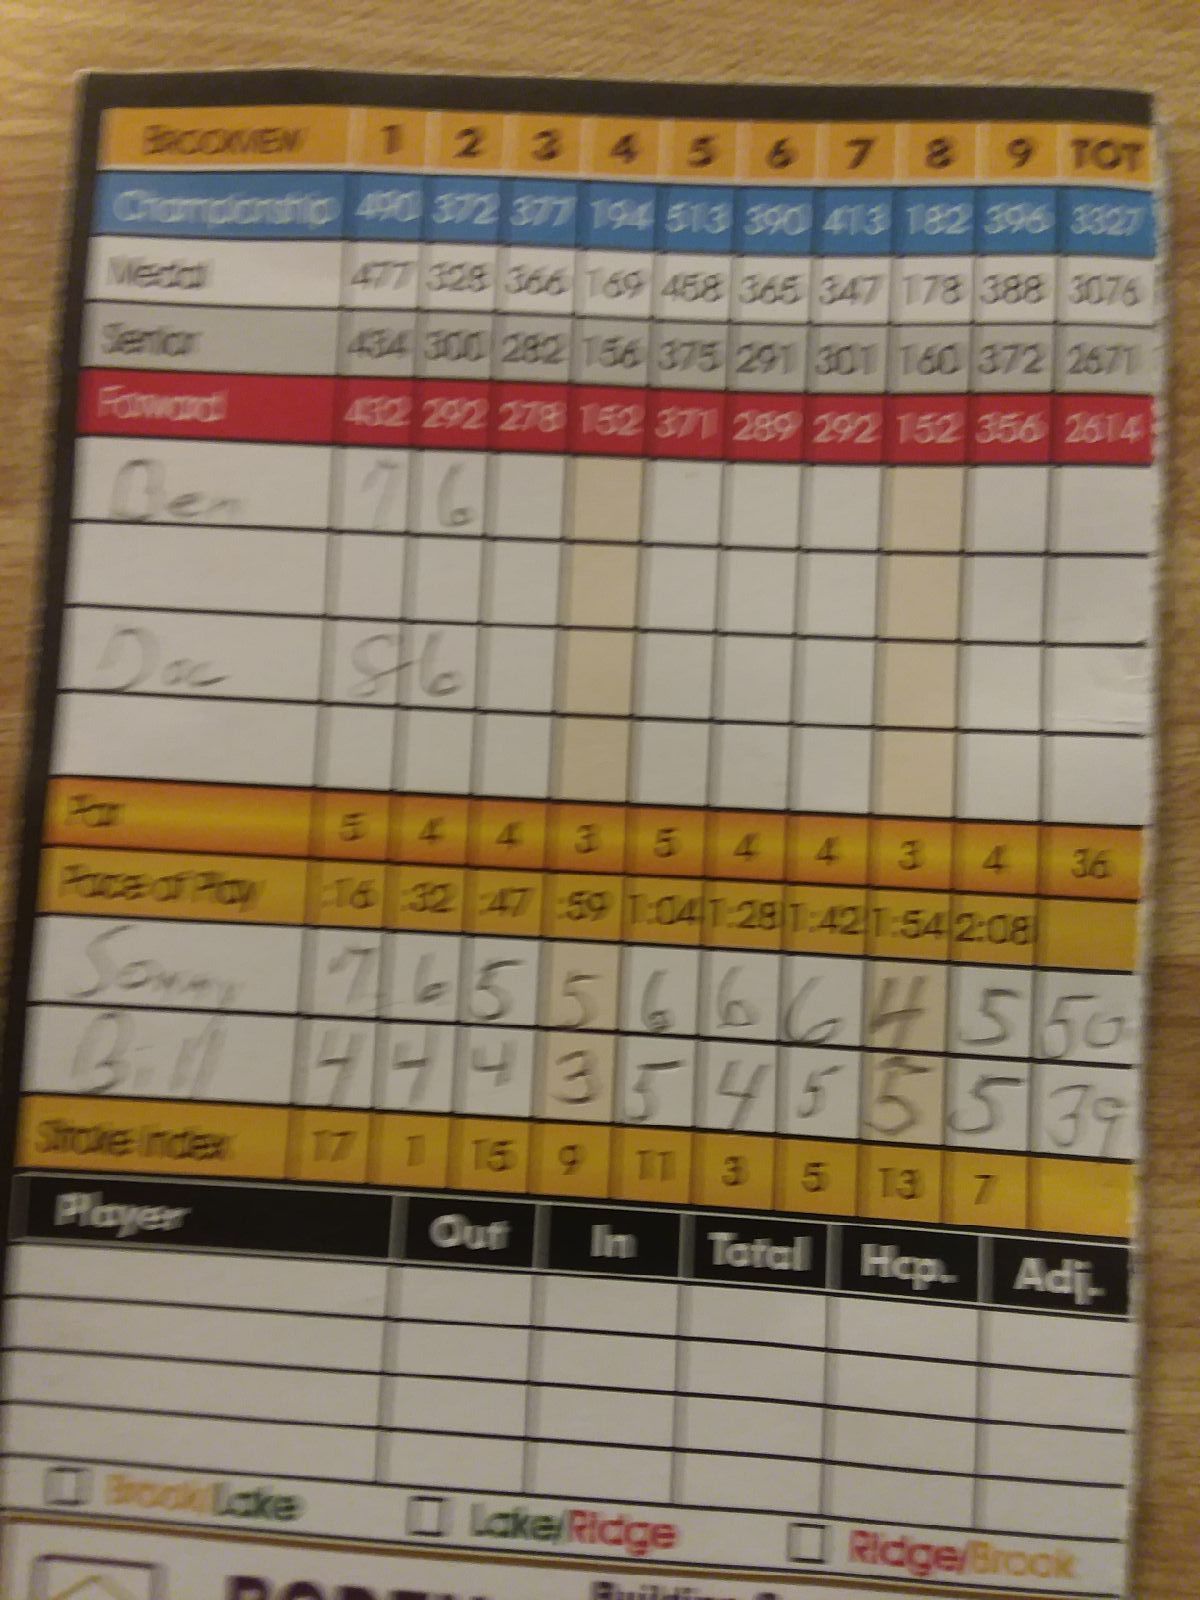 BROOKVIEW 1 2 3 4 5 6 7 8 9 TOT
Championship 490 372 377 194 513 390 413 182 396 3327
Medal 477 328 366 169 458 365 347 178 388 3076
Senior 434 300 282 156 375 291 301 160 372 2671
Forward 432 292 278 152 371 289 292 152 356 2614
Ben 7 6
Doc 8 6
Par 5 4 4 3 5 4 4 3 4 36
Pace of Play :16 :32 :47 :59 1:04 1:28 1:42 1:54 2:08
Sonny 7 6 5 5 6 6 6 4 5 50
Bill 4 4 4 3 5 4 5 5 5 39
Stroke Index 17 1 15 9 11 3 5 13 7
Player Out In Total Hcp. Adj.
Brook/Lake Lake/Ridge Ridge/Brook